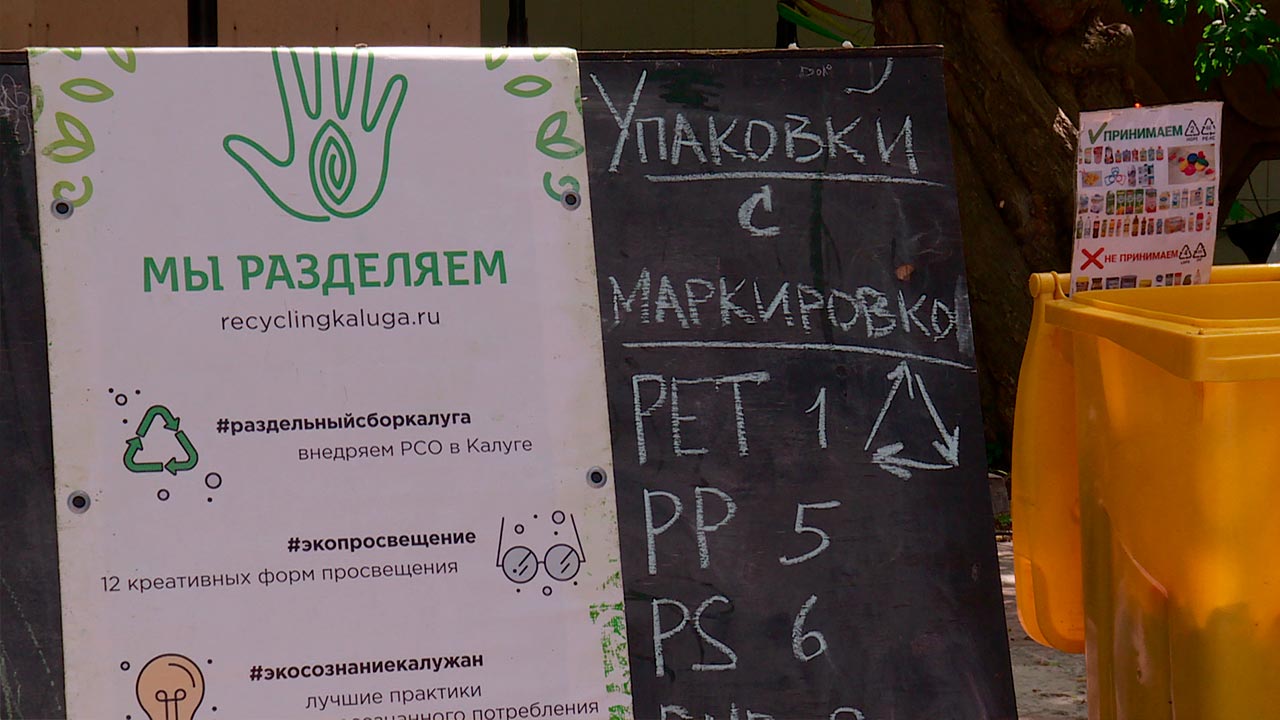 МЫ РАЗДЕЛЯЕМ
recyclingkaluga.ru
#раздельныйсборкалуга
внедряем РСО в Калуге
#экопросвещение
12 креативных форм просвещения
#экосознаниекалужан
лучшие практики
потребления
УПАКОВКИ
С
МАРКИРОВКО
PET 1
PP 5
PS 6
ПРИНИМАЕМ
НЕ ПРИНИМАЕМ